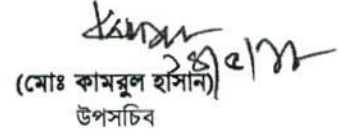 (মোঃ কামরুল হাসান)
উপসচিব